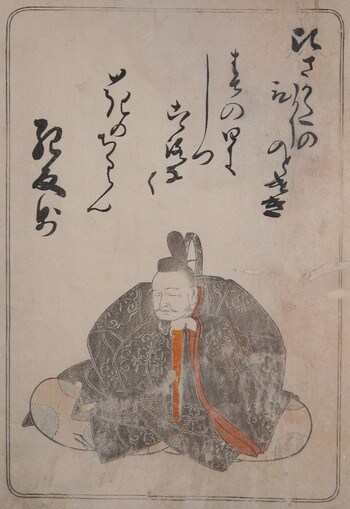 ひさかたの
ひかりのとけき
はるの日に
しつ
こゝろなく
花のちるらん
紀友則